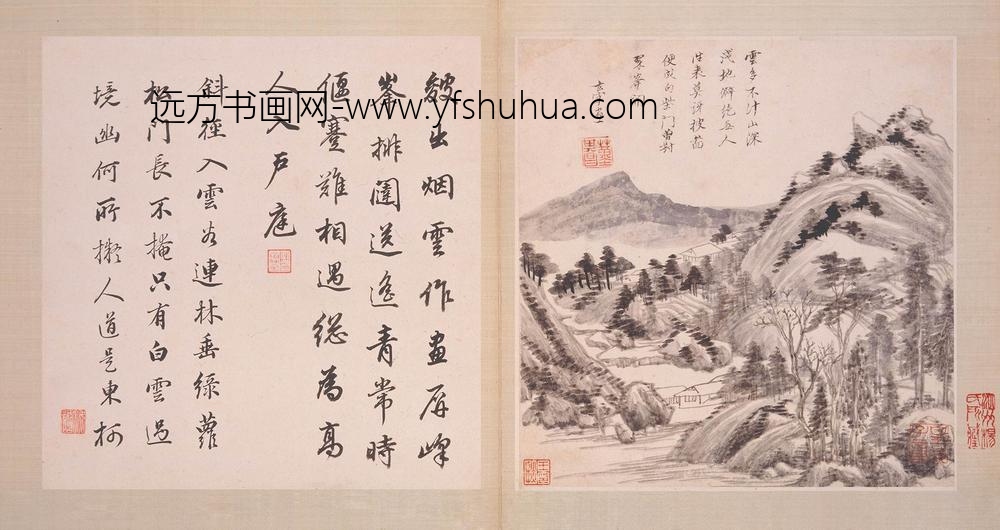 雲多不計山深
淺地僻絕無人
往來莫訝披圖
便成句柴門曾對
翠峯開
玄宰
變出烟雲作畫屏峰
巒排闥送遙青常時
偃蹇難相遇總為高
人入戶庭
斜徑入雲谷連林垂綠蘿
松門長不掩只有白雲過
境幽何所擬人道是東柯
远方书画网-www.yfshuhua.com